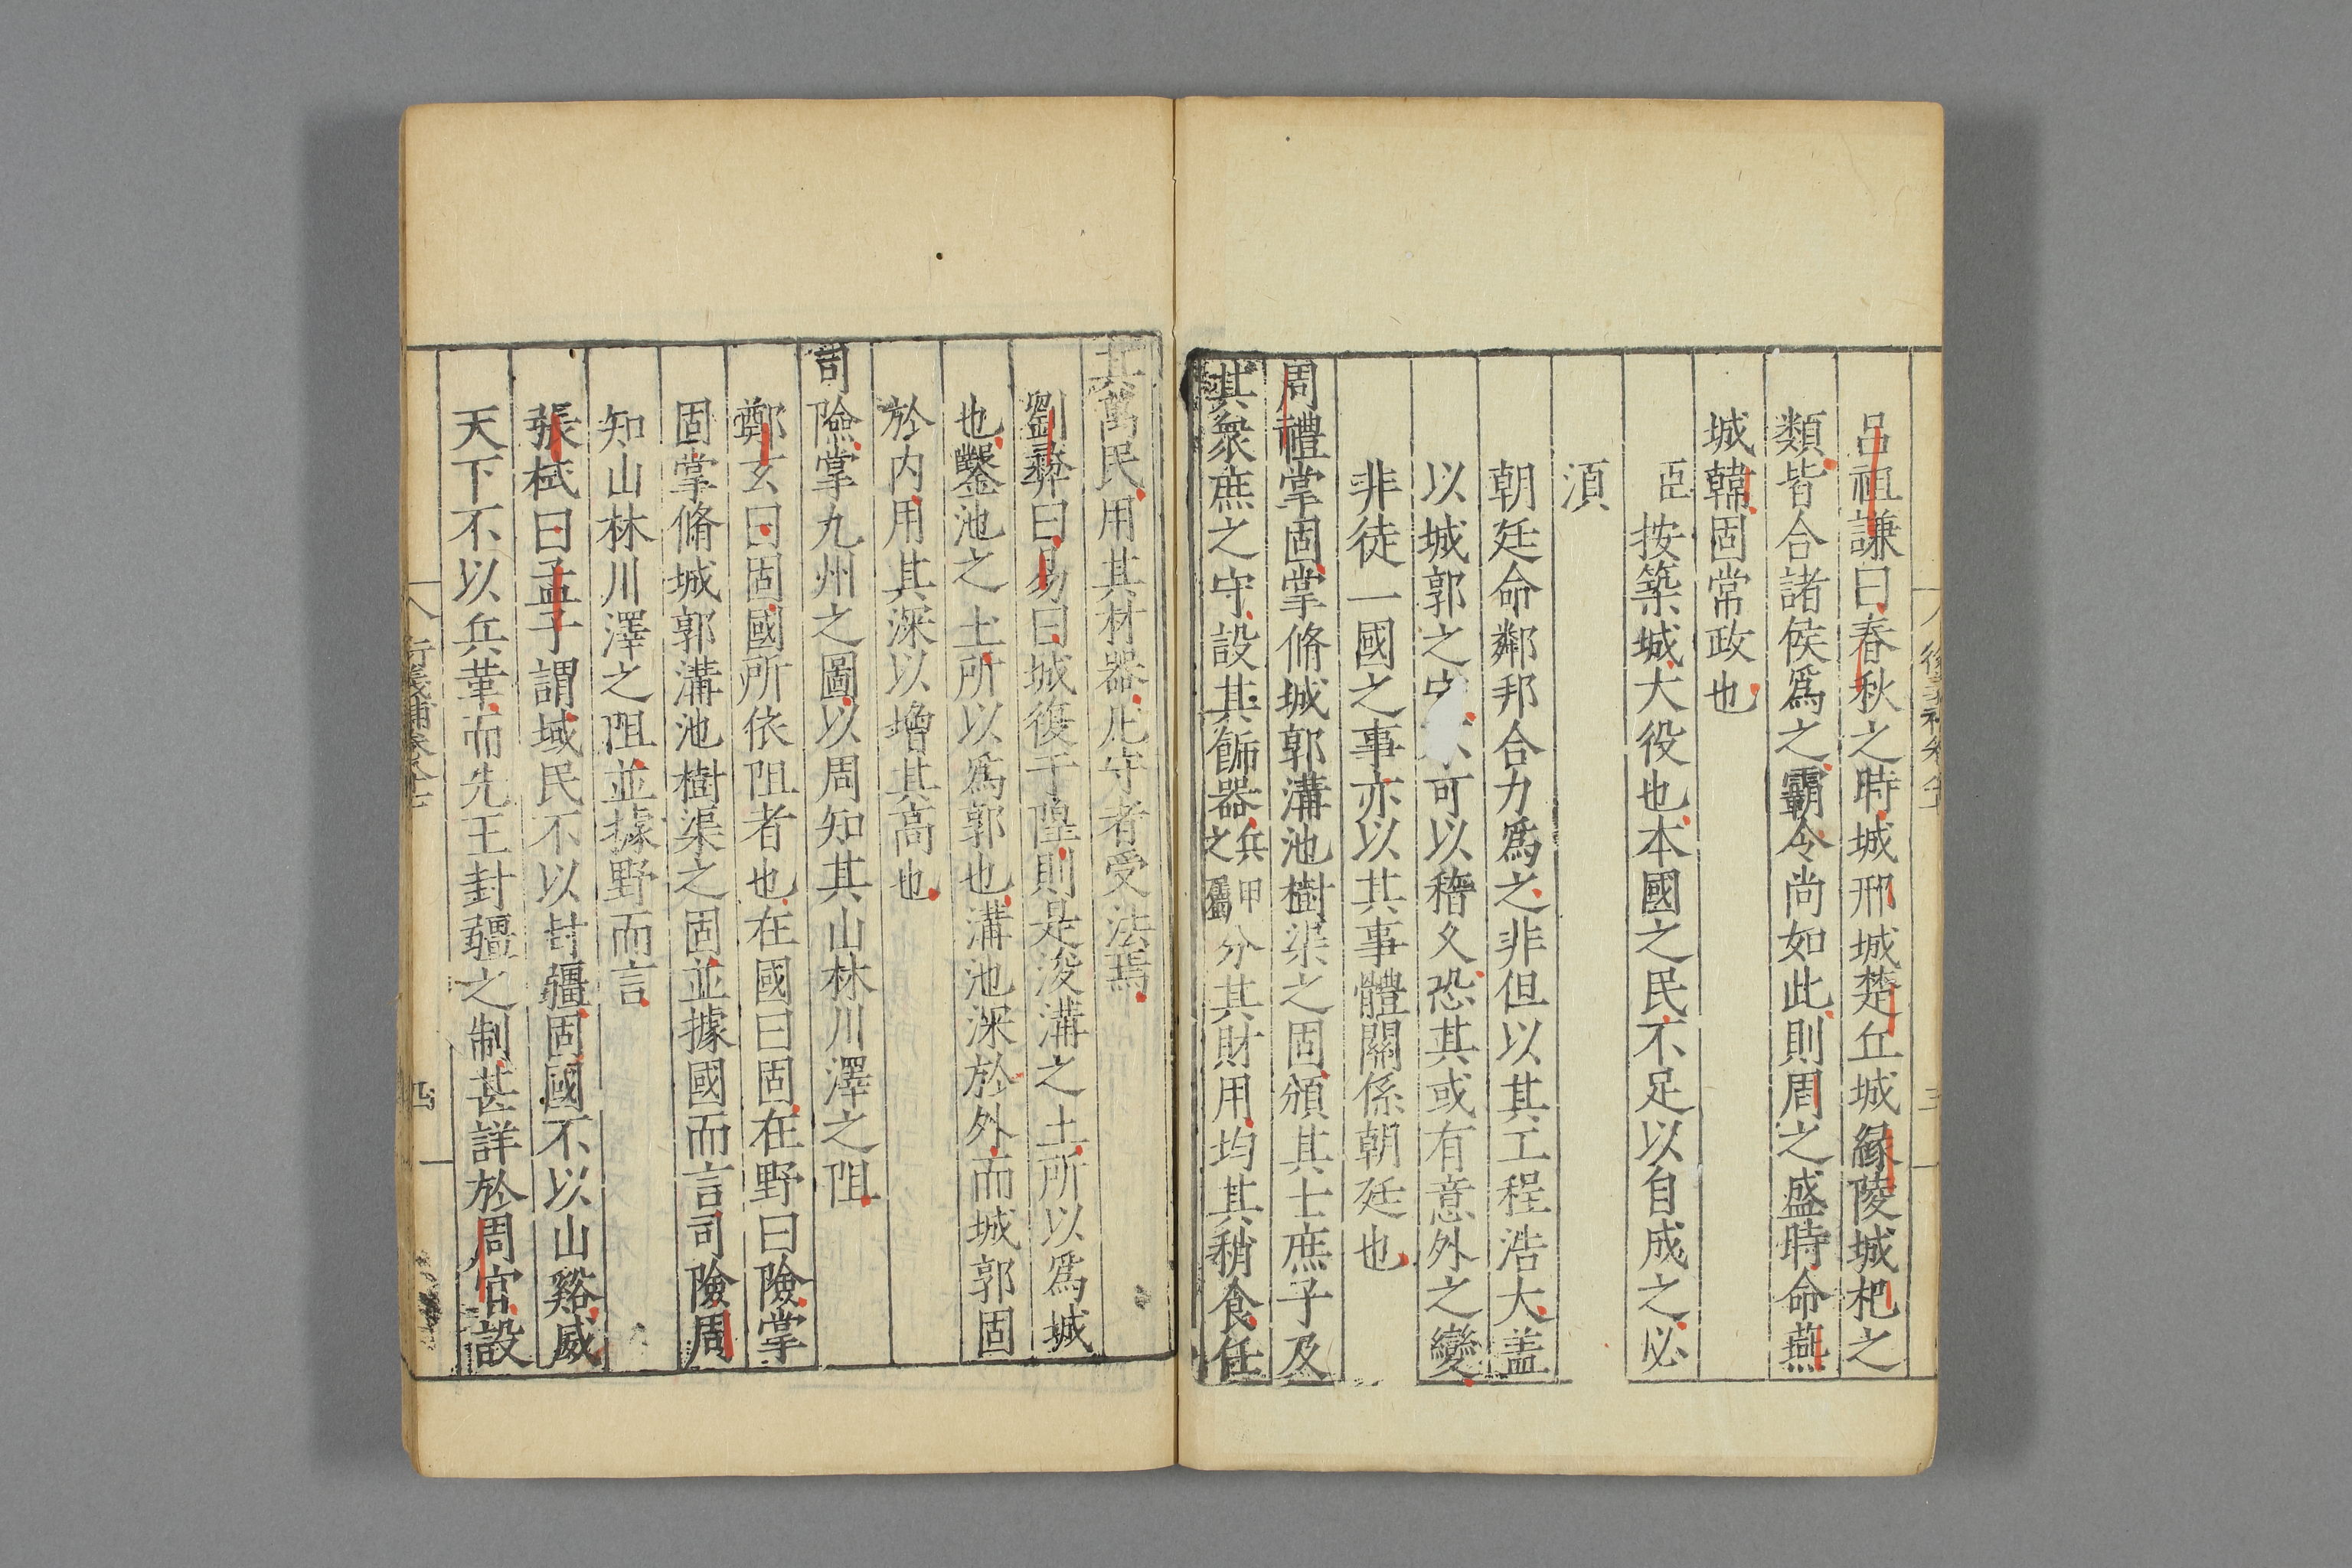 呂祖謙曰春秋之時城邢城楚丘城縁陵城杞之
類皆合諸侯爲之霸令尚如此則周之盛時命燕
城韓固常政也
臣按築城大役也本國之民不足以自成之必
湏
朝廷命鄰邦合力爲之非但以其工程浩大盖
以城郭之可以稽久恐其或有意外之變
非徒一國之事亦以其事體關係朝廷也
周禮掌固掌脩城郭溝池樹渠之固頒其士庶子及
其衆庶之守設其飾器兵甲之屬分其財用均其稍食任
其萬民用其材器凡守者受法焉
劉彛曰易曰城復于隍則是浚溝之土所以爲城
也鑿池之土所以爲郭也溝池深於外而城郭固
於内用其深以增其高也
司險掌九州之圖以周知其山林川澤之阻
鄭玄曰固國所依阻者也在國曰固在野曰險掌
固掌脩城郭溝池樹渠之固並據國而言司險周
知山林川澤之阻並據野而言
張栻曰孟子謂域民不以封疆固國不以山谿威
天下不以兵革而先王封疆之制甚詳於周官設
四